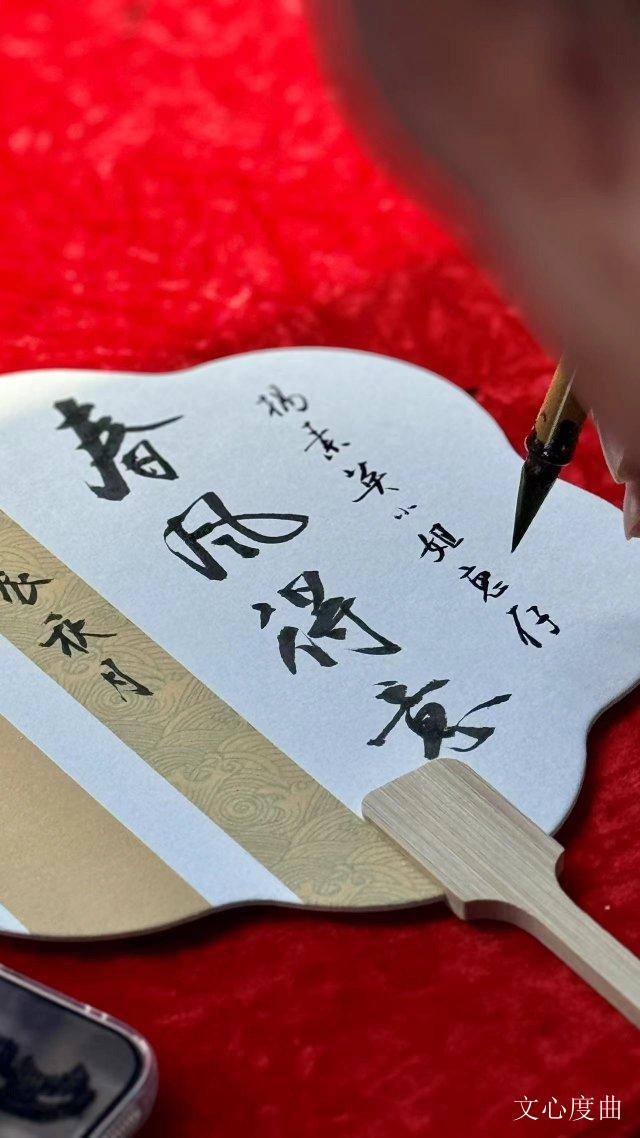 春风得意
杨景英小姐惠存
秋月
文心度曲